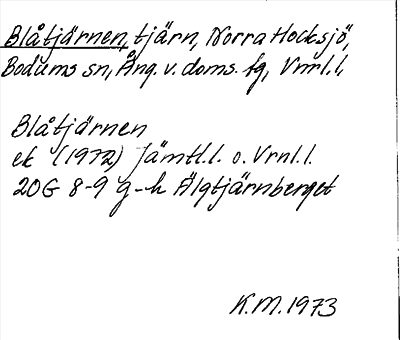 Blåtjärnen, tjärn, Norra Hocksjö,
Bodums sn, Ång. v. doms. fg, Vnrl.l,
Blåtjärnen
ek (1972) Jämtl.l. o. Vrnl.l.
20G 8-9 g-h Älgtjärnberget
K.M. 1973